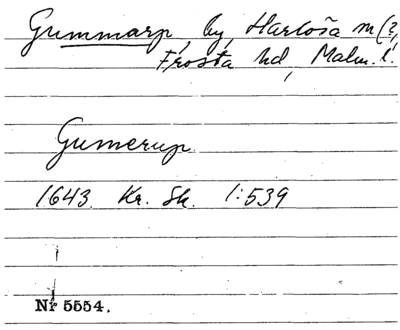 Gummarp, by, Harlösa sn (?)
Frosta hd, Malm. l.
Gumerup
1643. Kr. Sk. 1:539
Nr 5554.